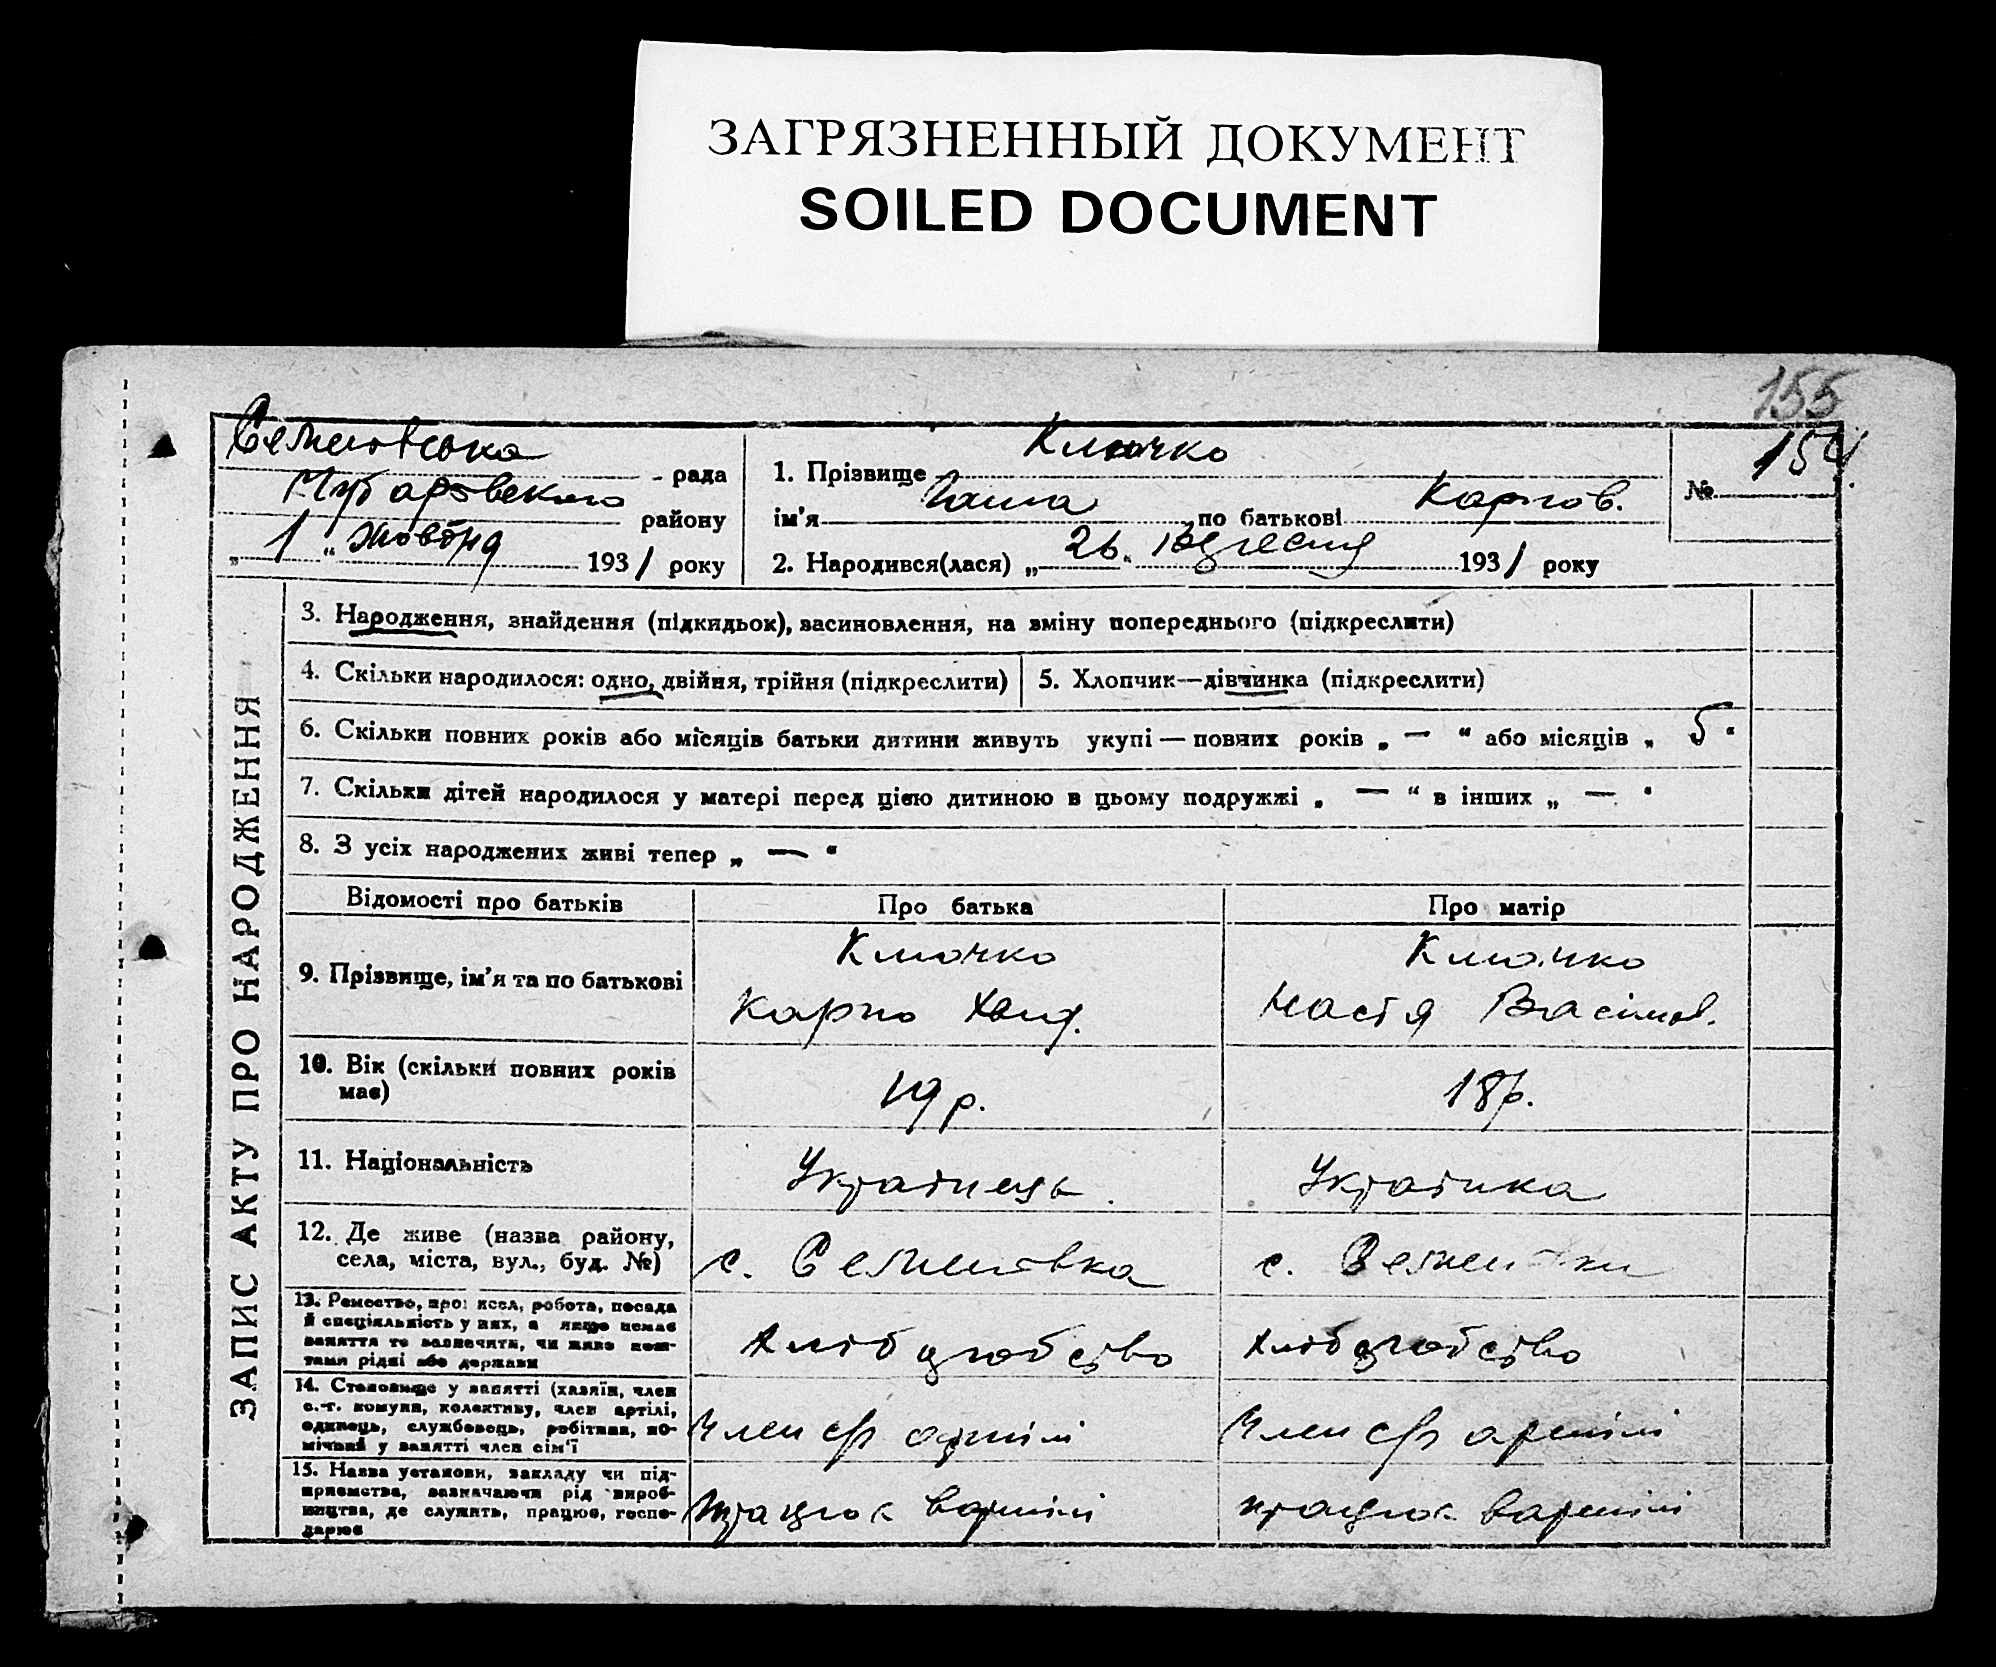 ЗАГРЯЗНЕННЫЙ ДОКУМЕНТ
SOILED DOCUMENT
155
Семенівська рада
Чубарівського району
„ 1 “ жовтня 1931 року
1. Прізвище Ключко
ім'я по батькові Карпов.
2. Народився(лася) „ 26 “ вересня 1931 року
№ 154
ЗАПИС АКТУ ПРО НАРОДЖЕННЯ
3. Народження, знайдення (підкидьок), васиновлення, на вміну попереднього (підкреслити)
4. Скільки народилося: одно, двійня, трійня (підкреслити)
5. Хлопчик—дівчинка (підкреслити)
6. Скільки повних років або місяців батьки дитини живуть укупі — повних років „ — “ або місяців „ 5 “
7. Скільки дітей народилося у матері перед цією дитиною в цьому подружжі „ — “ в інших „ — “
8. З усіх народжених живі тепер „ — “
Відомості про батьків
Про батька
Про матір
9. Прізвище, ім'я та по батькові
Ключко
Карпо
Ключко
Настя Васільов.
10. Вік (скільки повних років
має)
19 р.
18 р.
11. Національність
Українець
Українка
12. Де живе (назва району,
села, міста, вул., буд. №)
с. Семенівка
с. Семенівка
13. Ремество, професія, робота, посада
й спеціяльність у них, а якщо немає
заняття то зазначити, чи живе кош-
тами рідні або держави
Хліборобство
Хліборобство
14. Становище у занятті (хазяїн, член
с.-г. комуни, колективу, член артілі,
одинець, службовець, робітник, по-
мічний у занятті член сім'ї
Член с/г артілі
Член с/г артілі
15. Назва установи, закладу чи під-
приємства, зазначаючи рід вироб-
ництва, де служить, працює, госпо-
дарює
працює в артілі
працює в артілі